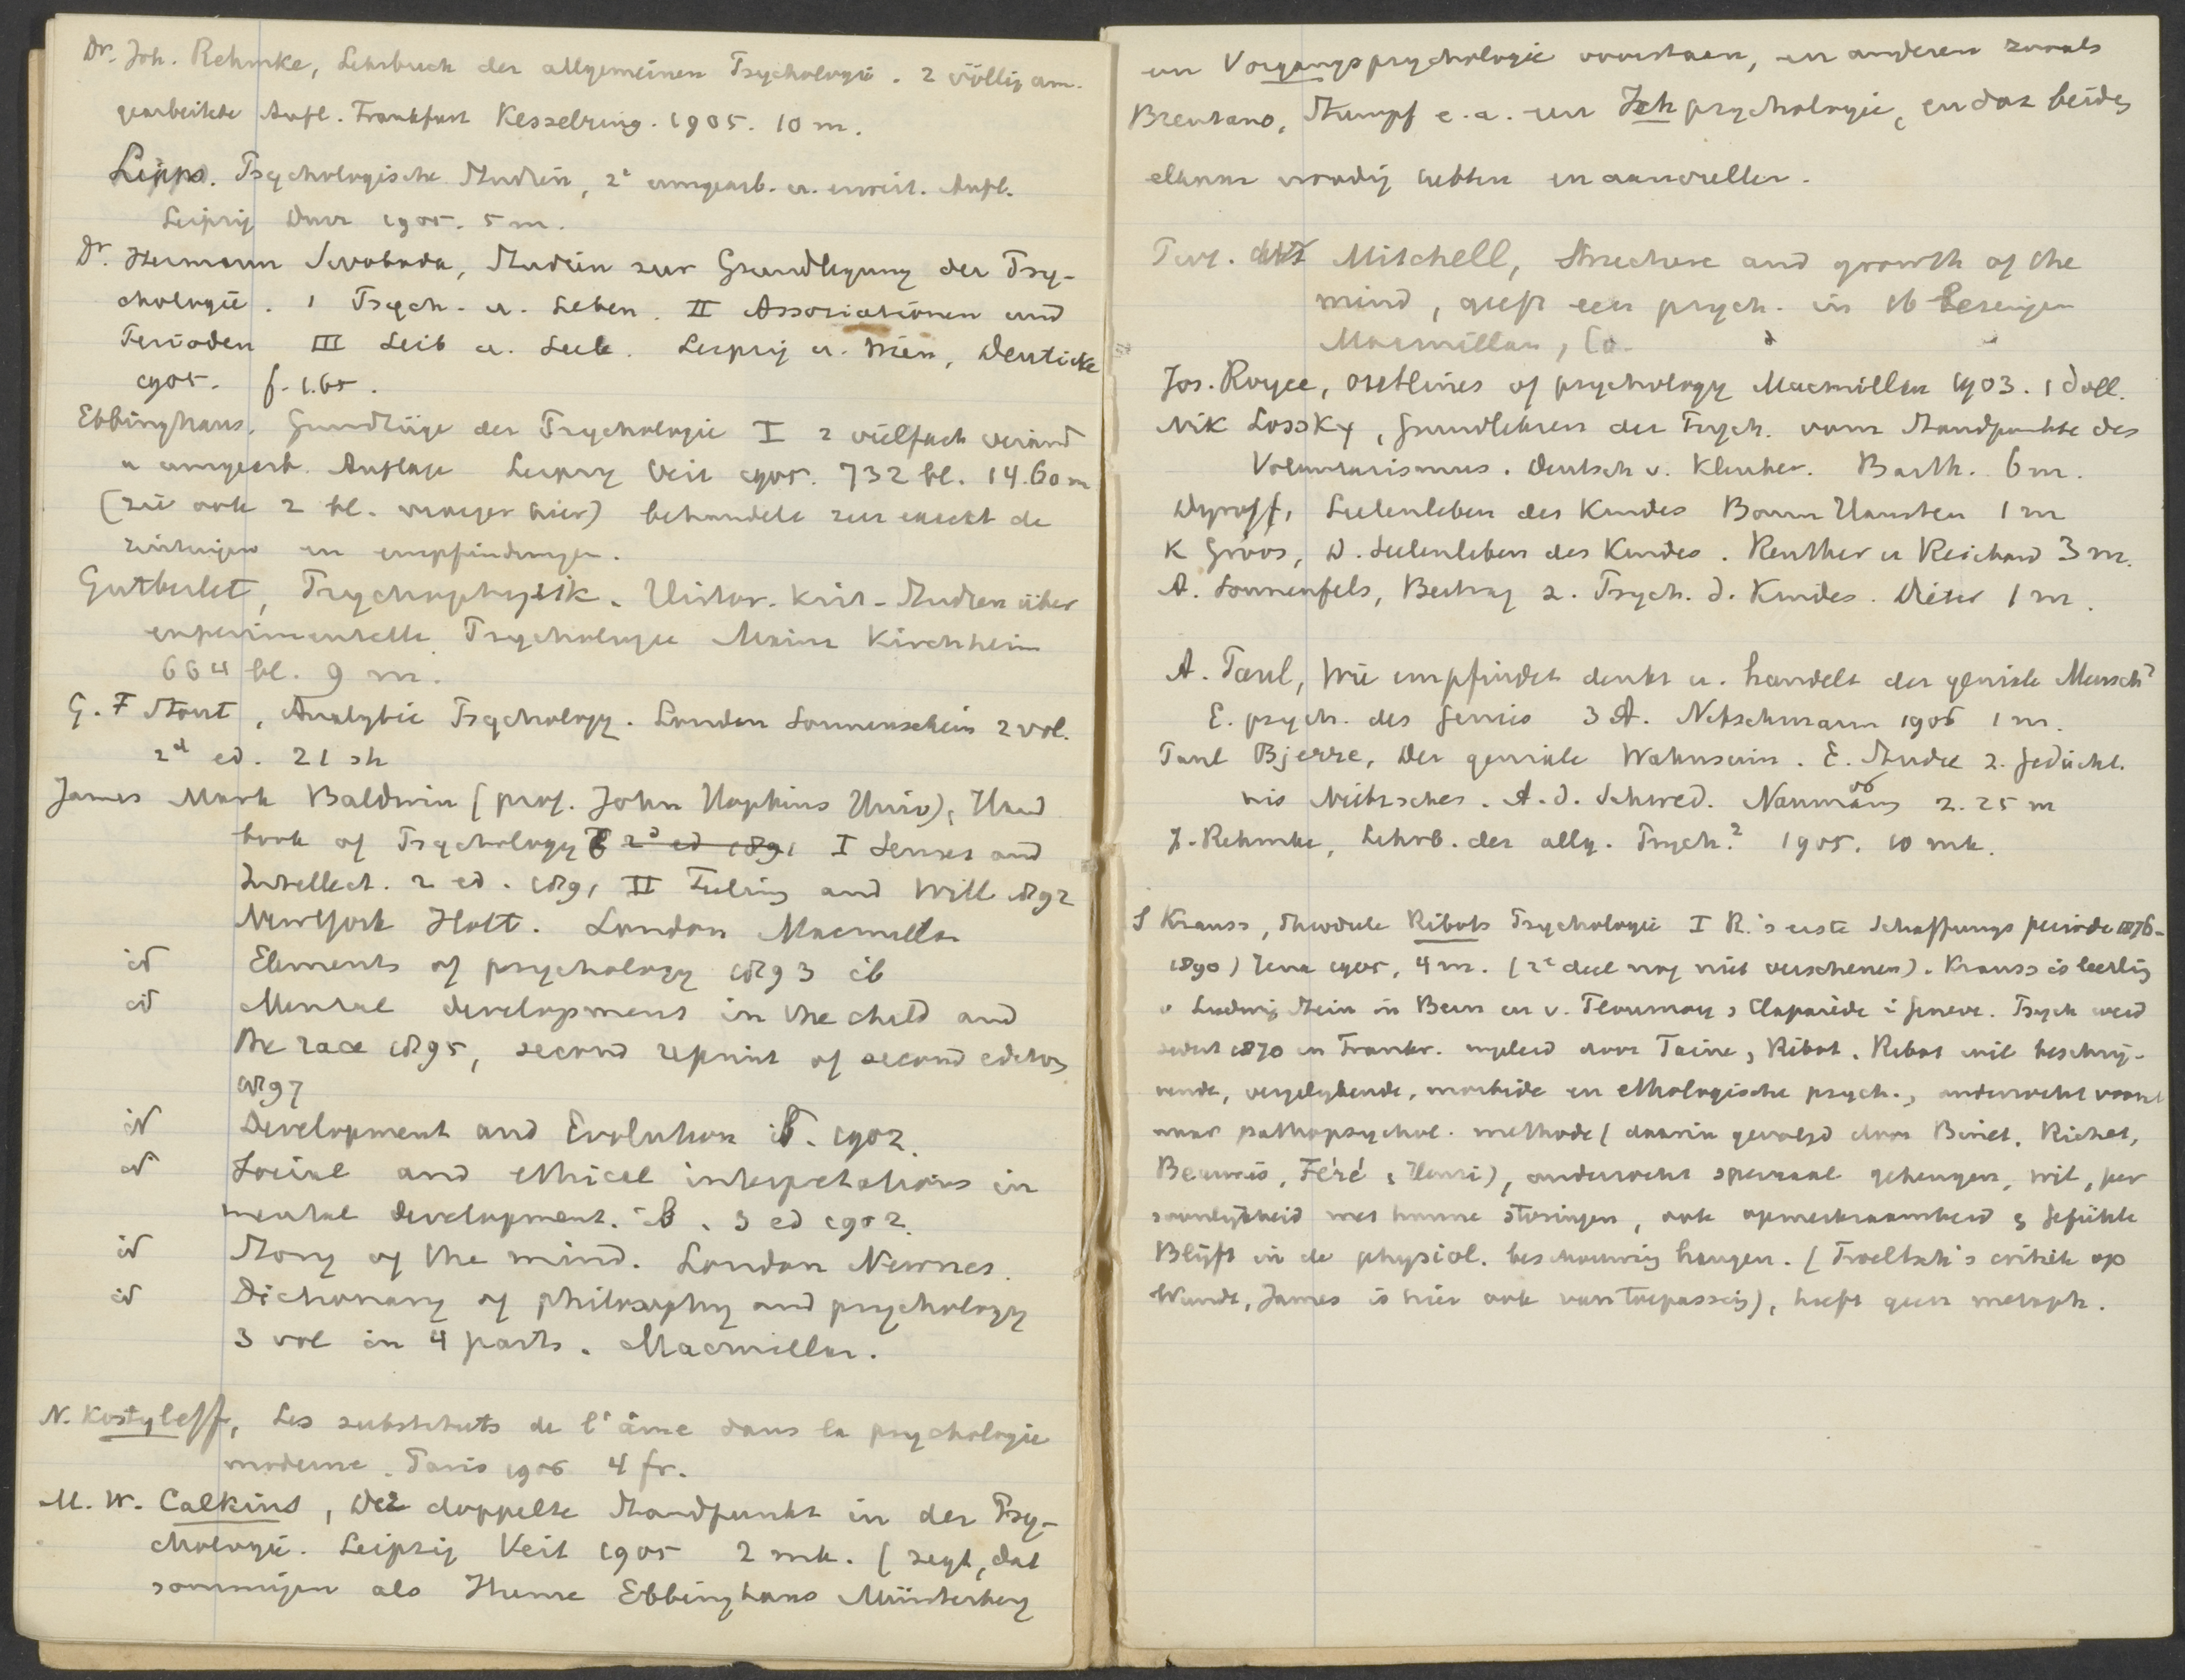 Dr. Joh. Rehmke, Lehrbuch der allgemeinen Psychologie. 2 völlig um-
gearbeitete Aufl. Frankfurt Kesselring. 1905. 10 m.
Lipps. Psychologische Studien, 2e umgearb. u. erweit. Aufl.
Leipzig Dürr 1905. 5 m.
Dr. Hermann Swoboda, Studien zur Grundlegung der Psy-
chologie. I Psych. u. Leben. II Associationen und
Perioden III Leib u. Seele. Leipzig u. Wien, Deuticke
1905. f. 1.65.
Ebbinghaus, Grundzüge der Psychologie I 2 vielfach veränd
u umgearb. Auflage Leipzig Veit 1905. 732 bl. 14.60 m
(zie ook 2 bl. vroeger hier) behandelt zeer exact de
zintuigen en empfindungen.
Gutberlet, Psychophysik. Histor. krit. Studien über
experimentelle Psychologie Mainz Kirchheim
664 bl. 9 m.
G. F Stout, Analytic Psychology. London Sonnenschein 2 vol.
2d ed. 21 sh
James Mark Baldwin (prof. John Hopkins Univ), Hand
book of Psychology 2d ed 1891 I Senses and
Intellect. 2 ed. 1891 II Feeling and Will 1892
NewYork Holt. London Macmillan
id Elements of psychology 1893 ib
id Mental development in the child and
the race 1895, second reprint of second edition
1897
id Development and Evolution ib. 1902.
id Social and ethical interpretations in
mental development. ib. 3 ed 1902.
id Story of the mind. London Newnes.
id Dictionary of philosophy and psychology
3 vol in 4 parts. Macmillan.
N. Kostyleff, Les substituts de l'âme dans la psychologie
moderne. Paris 1906 4 fr.
M. W. Calkins, Der doppelte Standpunkt in der Psy-
chologie. Leipzig Veit 1905 2 mk. (zegt, dat
sommigen als Hume Ebbinghaus Münsterberg
en Vorgangspsychologie voorstaan, en anderen zooals
Brentano, Stumpf e.a. een Ichpsychologie, en dat beide
elkaar noodig hebben en aanvullen.
Mitchell, Structure and growth of the
mind, geeft een psych. in 16 Lezingen
Macmillan, Co.
Jos. Royce, outlines of psychology Macmillan 1903. 1 doll.
Nik Lossky, Grundlehren der Psych. vom Standpunkte des
Voluntarismus. Deutsch v. Kleuker. Barth. 6 m.
Dyroff, Seelenleben des Kindes Bonn Hanstein 1 m
K Groos, D. Seelenleben des Kindes. Reuther u Reichard 3 m.
A. Sonnenfels, Beitrag z. Psych. d. Kindes. 1 m.
A. Paul, Wie empfindet denkt u. handelt der geniale Mensch?
E. psych. des Genies 3 A. 1906 1 m.
Paul Bjerre, Der geniale Wahnsinn. E. Studie z. Gedächt-
nis Nietzsches. A. d. Schwed. Naumann 06 2.25 m
J. Rehmke, Lehrb. der allg. Psych.2 1905. 10 mk.
S Krauss, Theodule Ribots Psychologie I R.'s erste Schaffungsperiode 1876-
1890) Jena 1905, 4 m. (2e deel nog niet verschenen). Krauss is leerling
v Ludwig Stein in Bern en v. Flournoy & Claparède i Geneve. Psych werd
sedert 1870 in Frankr. ingeleid door Taine, Ribot. Ribot wil beschrij-
vende, vergelijkende, morbide en ethologische psych., onderzoekt vooral
naar pathopsychol. methode (daarin gevolgd door Binet, Richet,
Beaunis, Féré, Henri), onderzoekt speciaal geheugen, wil, per
soonlijkheid met hunne storingen, ook opmerkzaamheid & Gefühle
Blijft in de physiol. beschouwing hangen. (Troeltsch's critiek op
Wundt, James is hier ook van toepassing), heeft geen metaph.